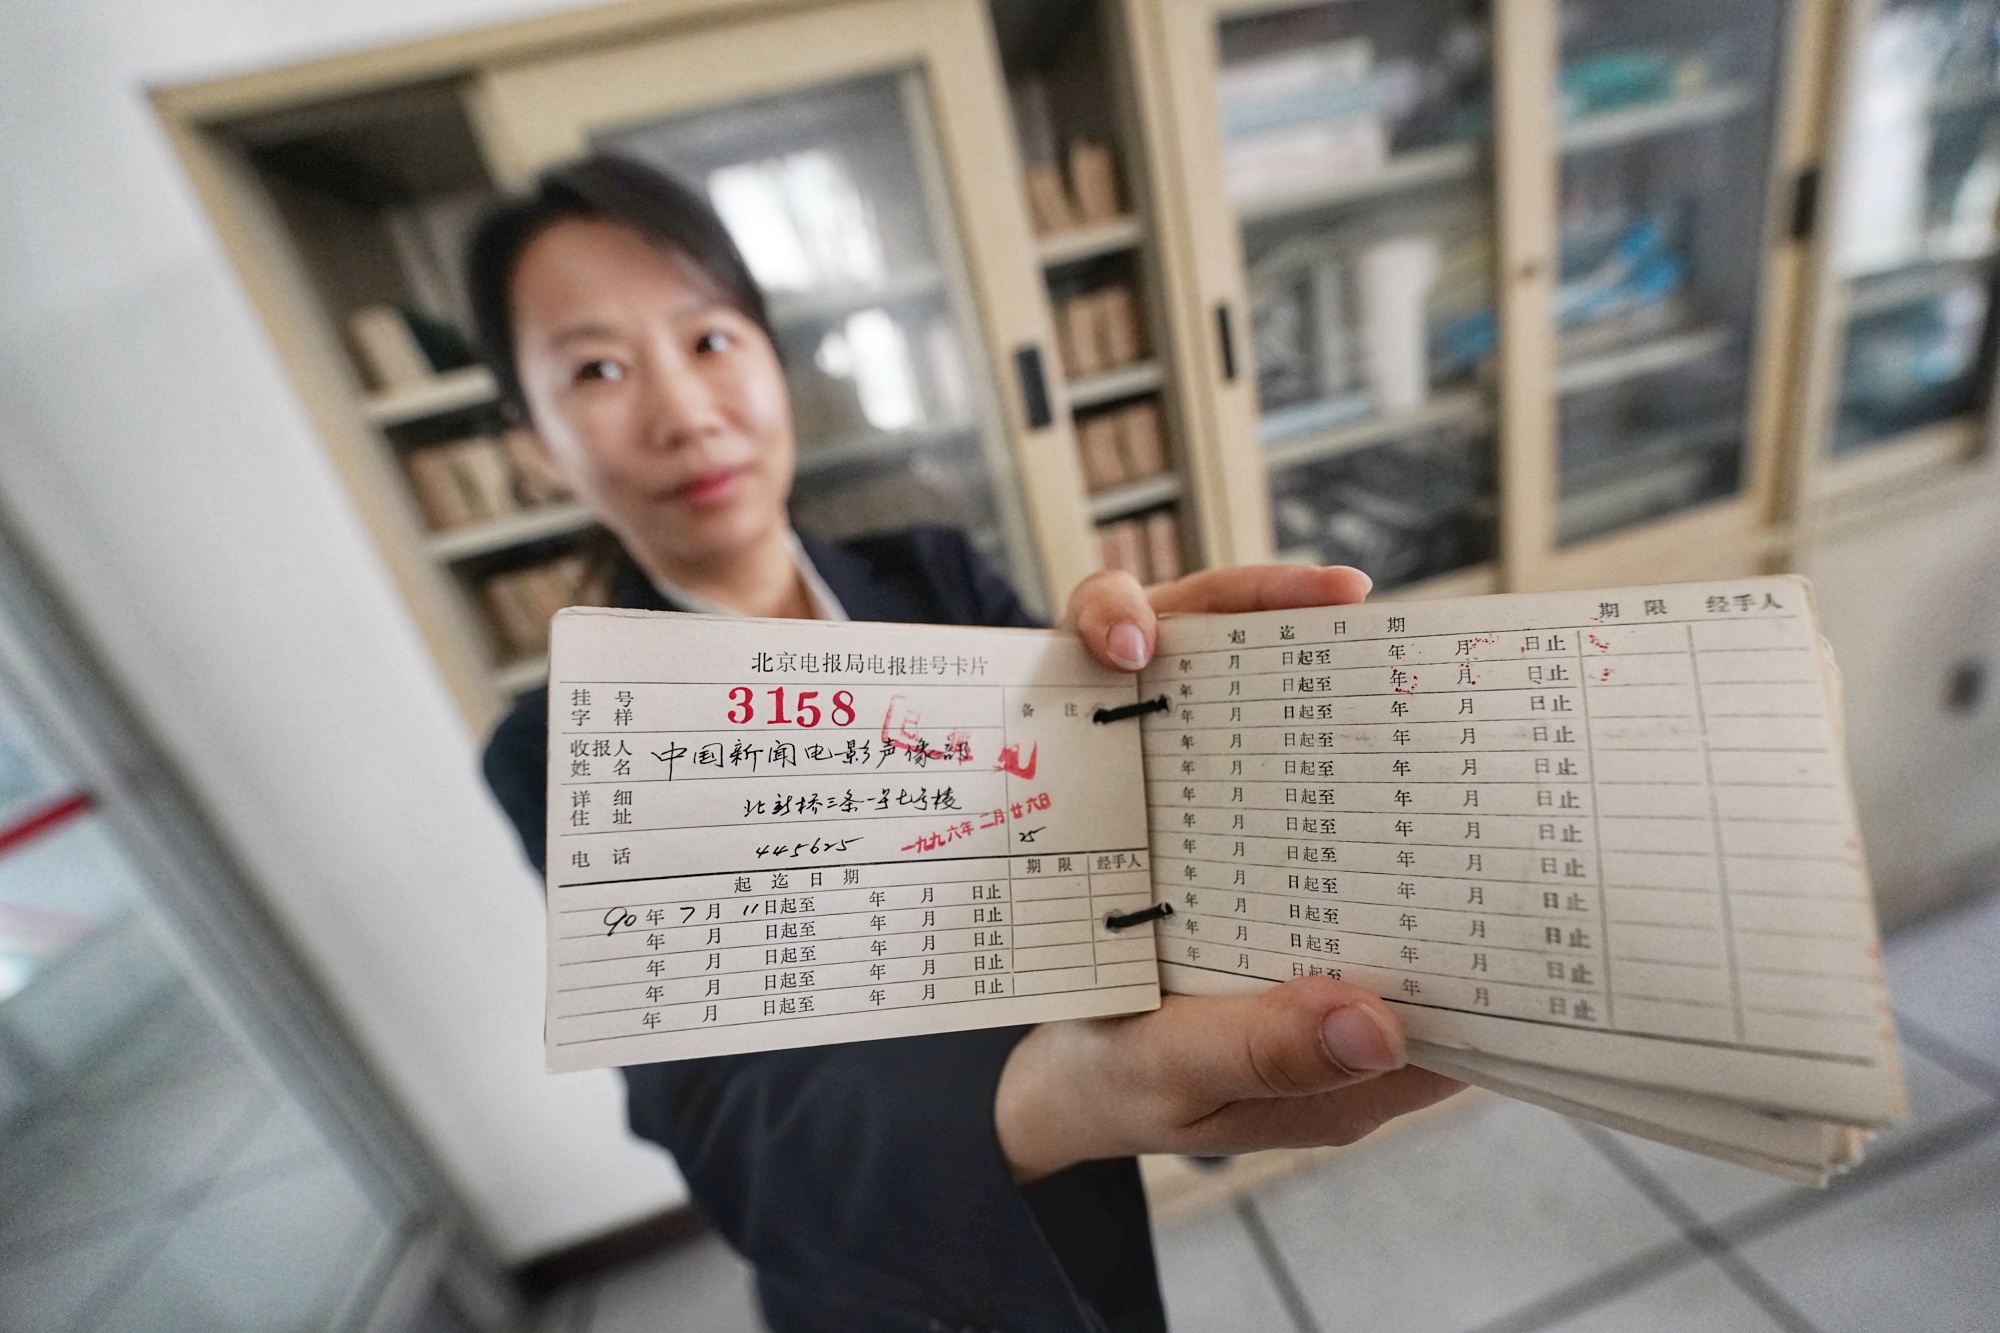 北京电报局电报挂号卡片
挂号 字样 3158 备注
收报人 姓名 中国新闻电影声像部
详细 住址 北新桥三条一号七号楼
一九九六年二月廿六日
电话 445625 25
起迄日期 期限 经手人
90年7月11日起至 年 月 日止
年 月 日起至 年 月 日止
年 月 日起至 年 月 日止
年 月 日起至 年 月 日止
年 月 日起至 年 月 日止
起迄日期 期限 经手人
年 月 日起至 年 月 日止
年 月 日起至 年 月 日止
年 月 日起至 年 月 日止
年 月 日起至 年 月 日止
年 月 日起至 年 月 日止
年 月 日起至 年 月 日止
年 月 日起至 年 月 日止
年 月 日起至 年 月 日止
年 月 日起至 年 月 日止
年 月 日起至 年 月 日止
年 月 日起至 年 月 日止
年 月 日起至 年 月 日止